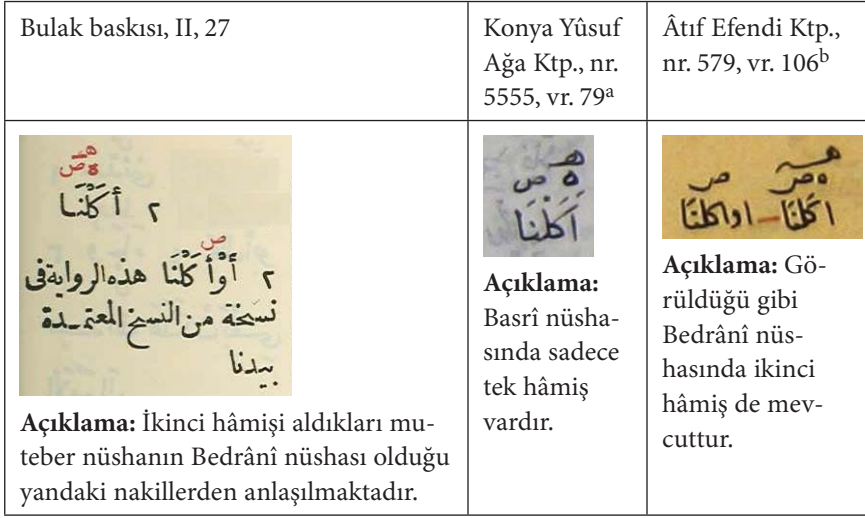 Bulak baskısı, II, 27
Konya Yûsuf
Ağa Ktp., nr.
5555, vr. 79a
Âtıf Efendi Ktp.,
nr. 579, vr. 106b
ه ص
٢ أَكَلْنَا
ص
٢ أَوْ أَكَلْنَا هذه الرواية فى
نسخة من النسخ المعتمدة
بيدنا
Açıklama: İkinci hâmişi aldıkları mu-
teber nüshanın Bedrânî nüshası olduğu
yandaki nakillerden anlaşılmaktadır.
ه ص
أَكَلْنَا
Açıklama:
Basrî nüsha-
sında sadece
tek hâmiş
vardır.
ه ص ص
اكلنا او اكلنا
Açıklama: Gö-
rüldüğü gibi
Bedrânî nüs-
hasında ikinci
hâmiş de mev-
cuttur.